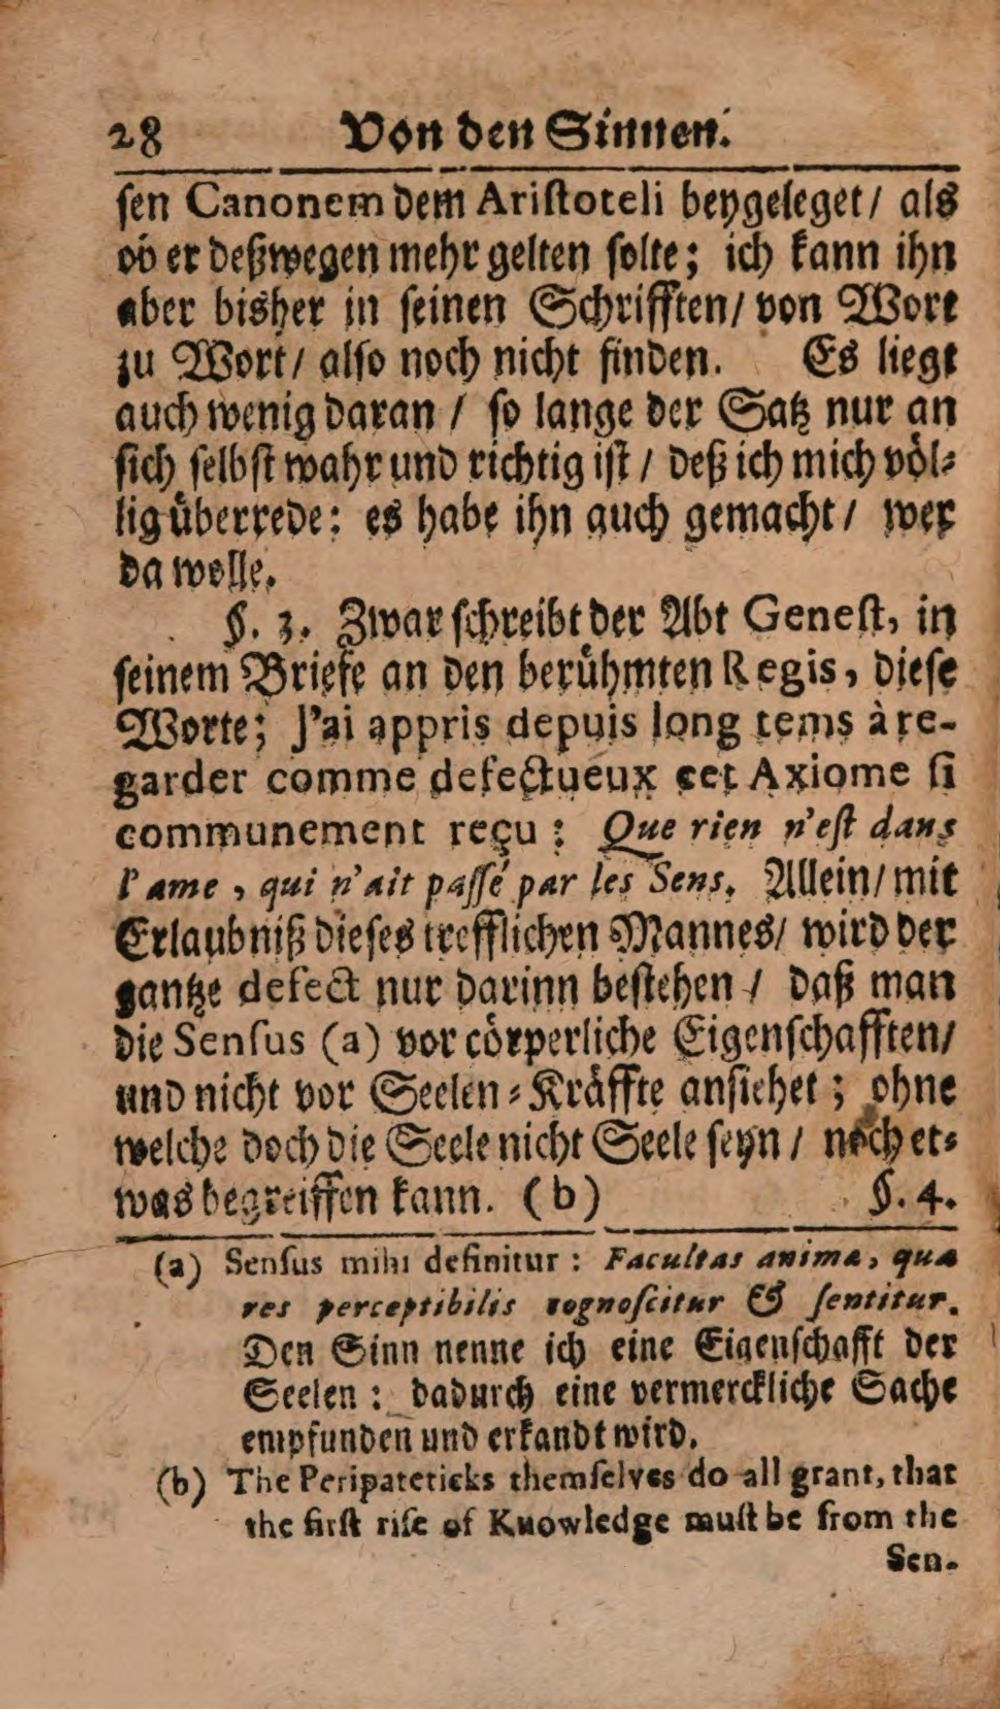 28 Von den Sinnen.
ſen Canonem dem Ariſtoteli beygeleget/ als
ob er deßwegen mehr gelten ſolte; ich kann ihn
aber bisher in ſeinen Schrifften/ von Wort
zu Wort/ alſo noch nicht finden. Es liegt
auch wenig daran / ſo lange der Satz nur an
ſich ſelbſt wahr und richtig iſt / deß ich mich voͤl⸗
lig uͤberrede: es habe ihn auch gemacht/ wer
da wolle.
§. 3. Zwar ſchreibt der Abt Geneſt, in
ſeinem Briefe an den beruͤhmten Regis, dieſe
Worte; J'ai appris depuis long tems à re-
garder comme defectueux cet Axiome ſi
communement reçu : Que rien n'eſt dans
l'ame , qui n'ait paſſé par les Sens. Allein/ mit
Erlaubniß dieſes trefflichen Mannes/ wird der
gantze defect nur darinn beſtehen / daß man
die Senſus (a) vor coͤrperliche Eigenſchafften/
und nicht vor Seelen⸗Kraͤffte anſiehet ; ohne
welche doch die Seele nicht Seele ſeyn / noch et⸗
was begreiffen kann. (b) §. 4.
(a) Senſus mihi definitur : Facultas animæ, qua
res perceptibilis cognoſcitur & ſentitur.
Den Sinn nenne ich eine Eigenſchafft der
Seelen : dadurch eine vermerckliche Sache
empfunden und erkandt wird.
(b) The Peripateticks themſelves do all grant, that
the firſt riſe of Knowledge muſt be from the
Sen-